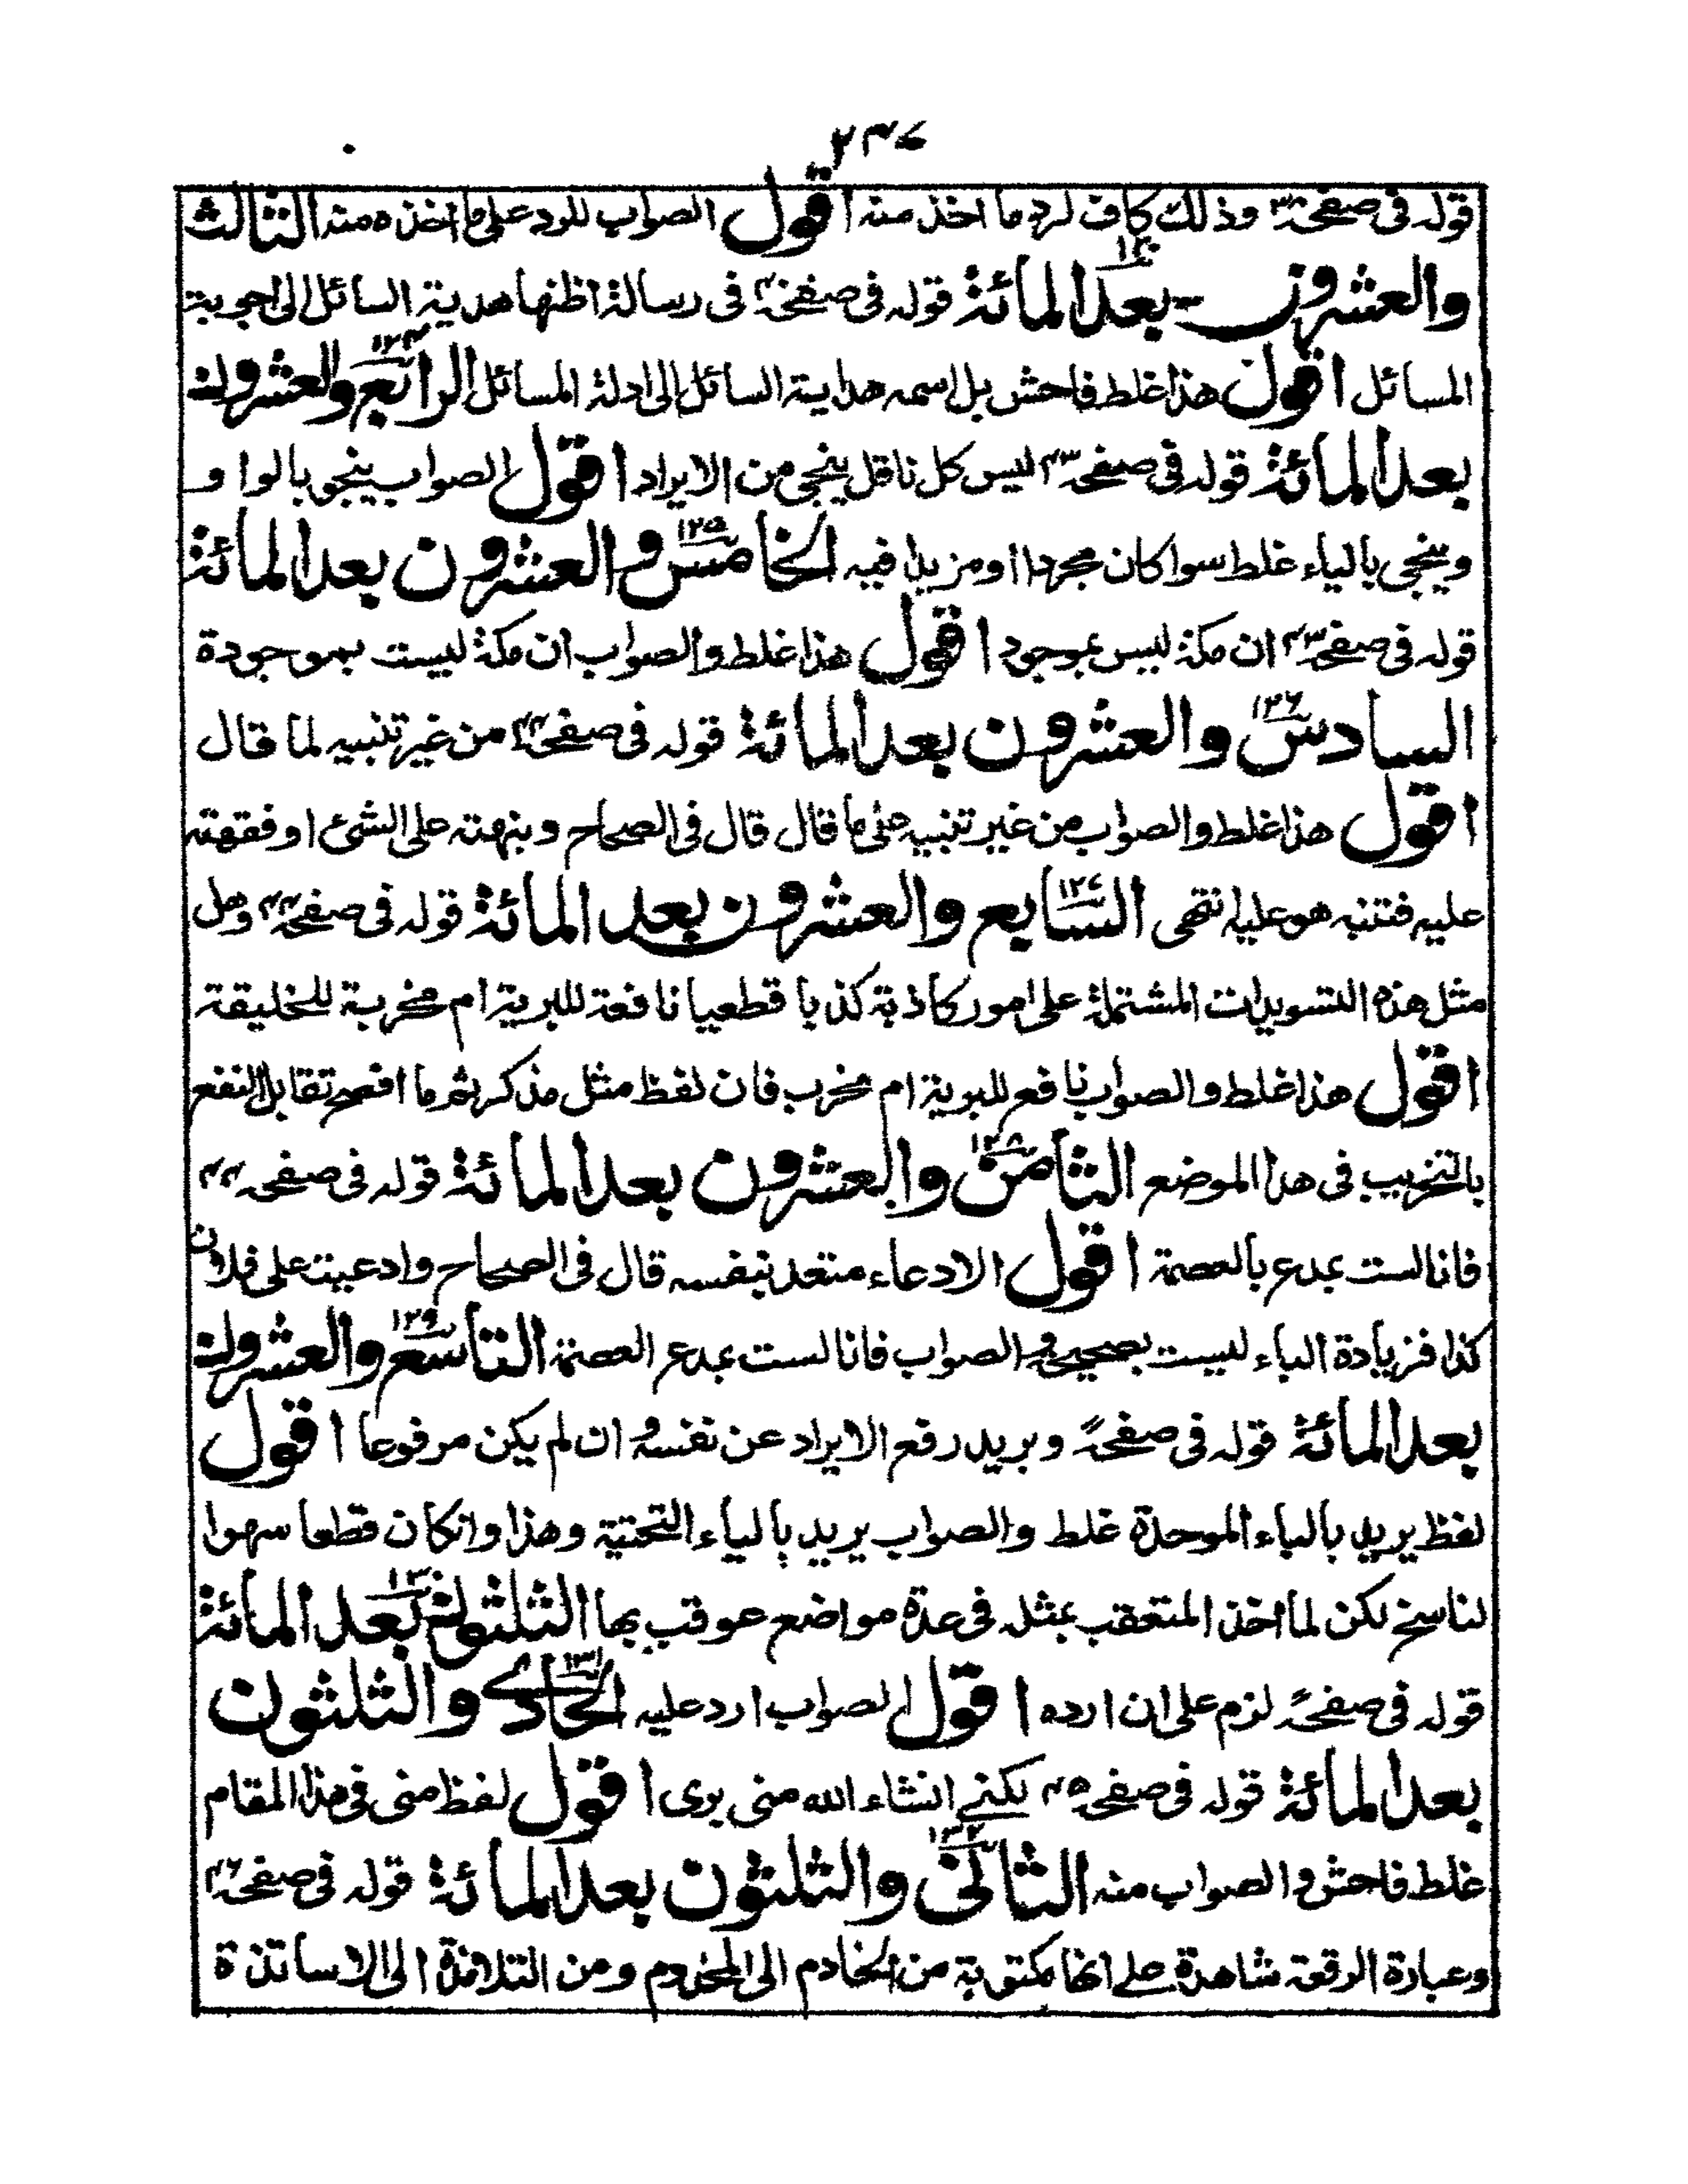 ٢٣٧
قوله فى صفحة وذلك كاف لرد ما اخذ منه اقول الصواب للرد على ما اخذه منه الثالث
والعشرون بعد المائة قوله فى صفحة فى رسالة اظنها هدية السائل الى اجوبة
المسائل اقول هذا غلط فاحش بل اسمه هداية السائل الى ادلة المسائل الرابع والعشرون
١٢٤
بعد المائة قوله فى صفحة ٤٣ ليس كل ناقل ينجى من الايراد اقول الصواب ينجو بالواو
وينجى بالياء غلط سوا كان مجردا او مزيدا فيه الخامس والعشرون بعد المائة
١٢٥
قوله فى صفحة ٤٣ ان مكة ليس بموجود اقول هذا غلط والصواب ان مكة ليست بموجودة
السادس والعشرون بعد المائة قوله فى صفحة ٤٤ من غير تنبيه لما قال
١٢٦
اقول هذا غلط والصواب من غير تنبيه على ما قال قال فى الصحاح ونبهته على الشئ اوقفته
عليه فتنبه هو عليه انتهى السابع والعشرون بعد المائة قوله فى صفحة ٤٤ وهل
١٢٧
مثل هذه التسويدات المشتملة على امور كاذبة كذبا قطعيا نافعة للبرية ام مخربة للخليقة
اقول هذا غلط والصواب نافع للبرية ام مخرب فان لفظ مثل مذكر ثم ما افصح تقابل النفع
بالتخريب فى هذا الموضع الثامن والعشرون بعد المائة قوله فى صفحه ٤٤
١٢٨
فانا لست بمدع بالعصمة اقول الادعاء متعد بنفسه قال فى الصحاح وادعيت على فلان
كذا فزيادة الباء ليست بصحيح والصواب فانا لست بمدع العصمة التاسع والعشرون
١٢٩
بعد المائة قوله فى صفحة وبريد رفع الايراد عن نفسه و ان لم يكن مرفوعا اقول
لفظ بريد بالباء الموحدة غلط والصواب يريد بالياء التحتية وهذا وانكان قطعا سهوا
لناسخ لكن لما اخذ المتعقب بمثله فى عدة مواضع عوقب بها الثلثون بعد المائة
١٣٠
قوله فى صفحة لزم على ان ارده اقول الصواب ارد عليه الحادى والثلثون
١٣١
بعد المائة قوله فى صفحة ٤٥ لكنى انشاء الله منى برى اقول لفظ منى فى هذا المقام
غلط فاحش والصواب منه الثانى والثلثون بعد المائة قوله فى صفحة ٤٦
١٣٢
وعبارة الرقعة شاهدة على انها مكتوبة من الخادم الى المخدوم ومن التلامذة الى الاساتذة